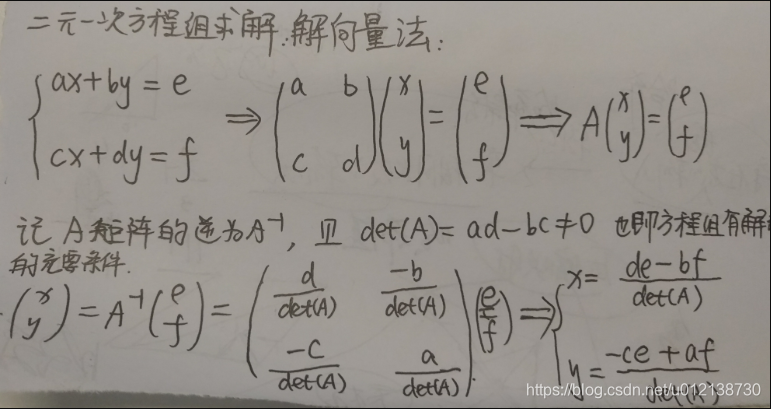 二元一次方程组求解:解向量法:
{ ax+by=e cx+dy=f ⟹ (a b c d)(x y)=(e f) ⟹ A(x y)=(e f)
记 A矩阵的逆为A⁻¹, 且 det(A)=ad-bc≠0 也即方程组有解
的充要条件.
(x y)=A⁻¹(e f)=(d/det(A) -b/det(A) -c/det(A) a/det(A))(e f) ⟹ { x=(de-bf)/det(A) y=(-ce+af)/det(A)
https://blog.csdn.net/u012138730